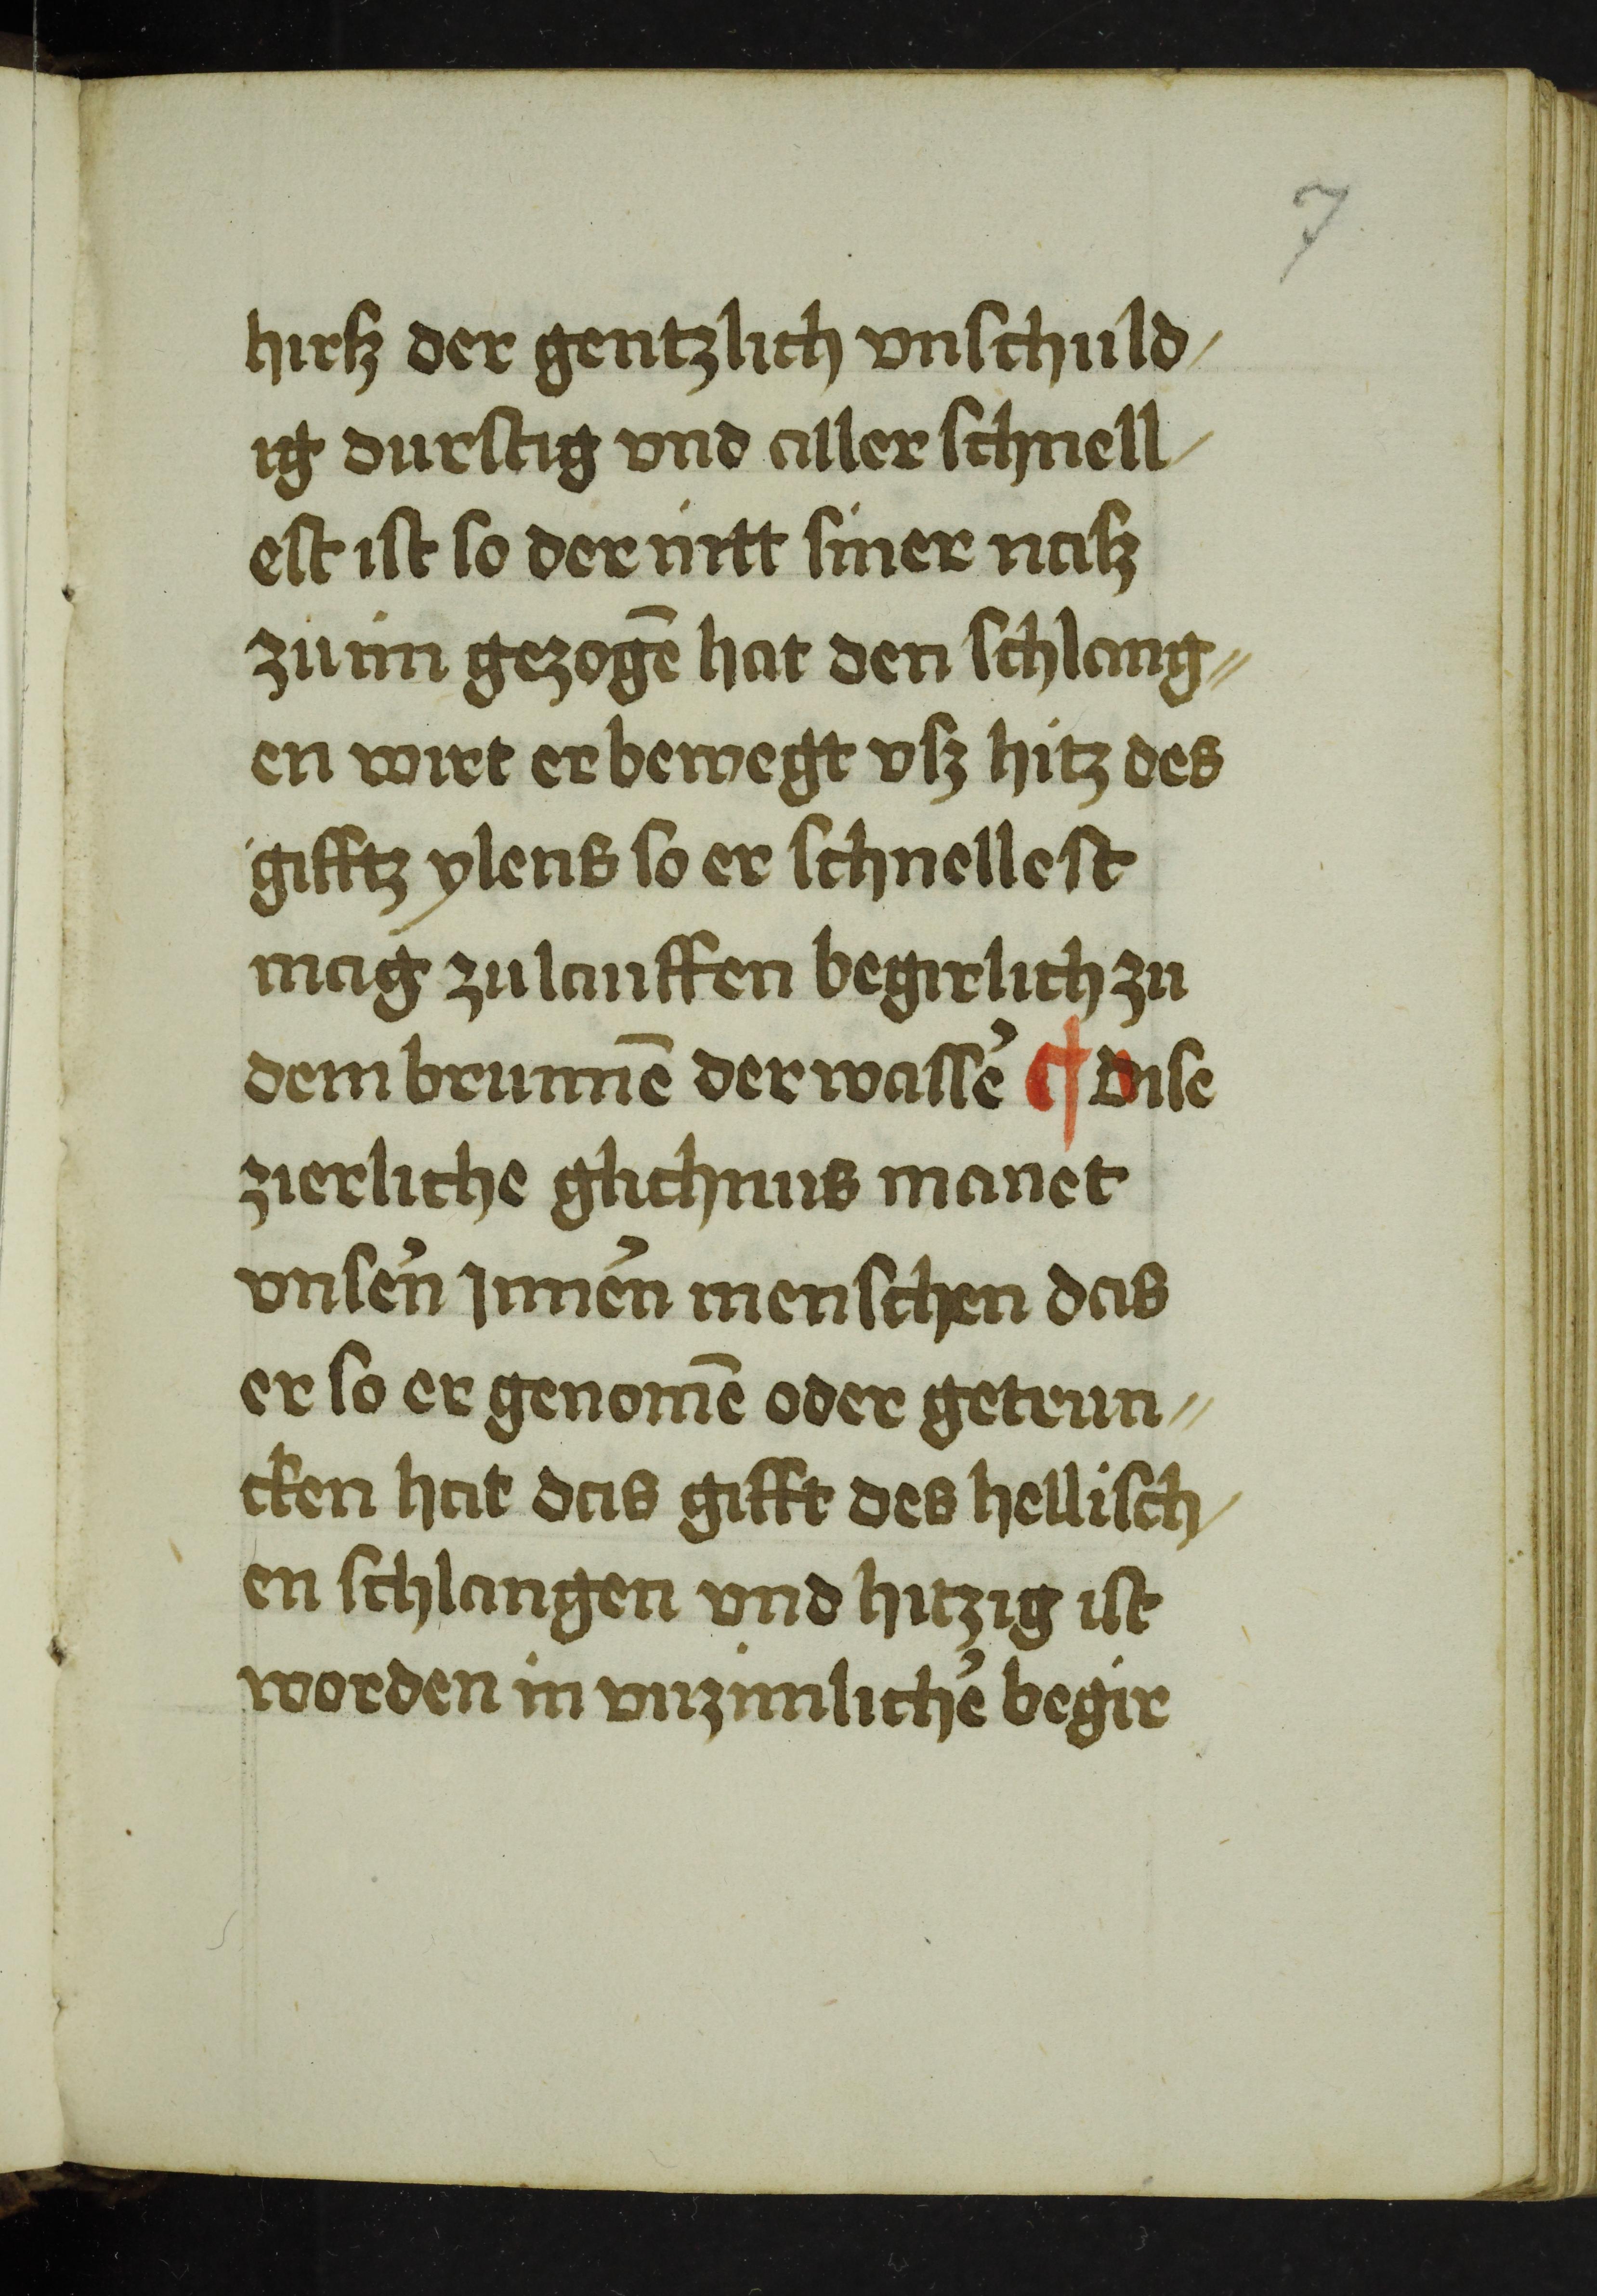 7
hirsz der gentzlich vnschuld⸗
ig durstig vnd aller schnell⸗
est ist so der mitt siner nasz
zu im gezogē hat den schlang⸗
en wirt er bewegt vsz hitz des
gifftz ylens so er schnellest
mag zu lauffen begirlich zu
dem brunnē der wasse᷑ ¶ Dise
zierliche glichnus manet
vnse᷑n Jnne᷑n menschen das
er so er genomē oder getrun⸗
cken hat das gifft des hellisch⸗
en schlangen vnd hitzig ist
worden in vnzimliche᷑ begir